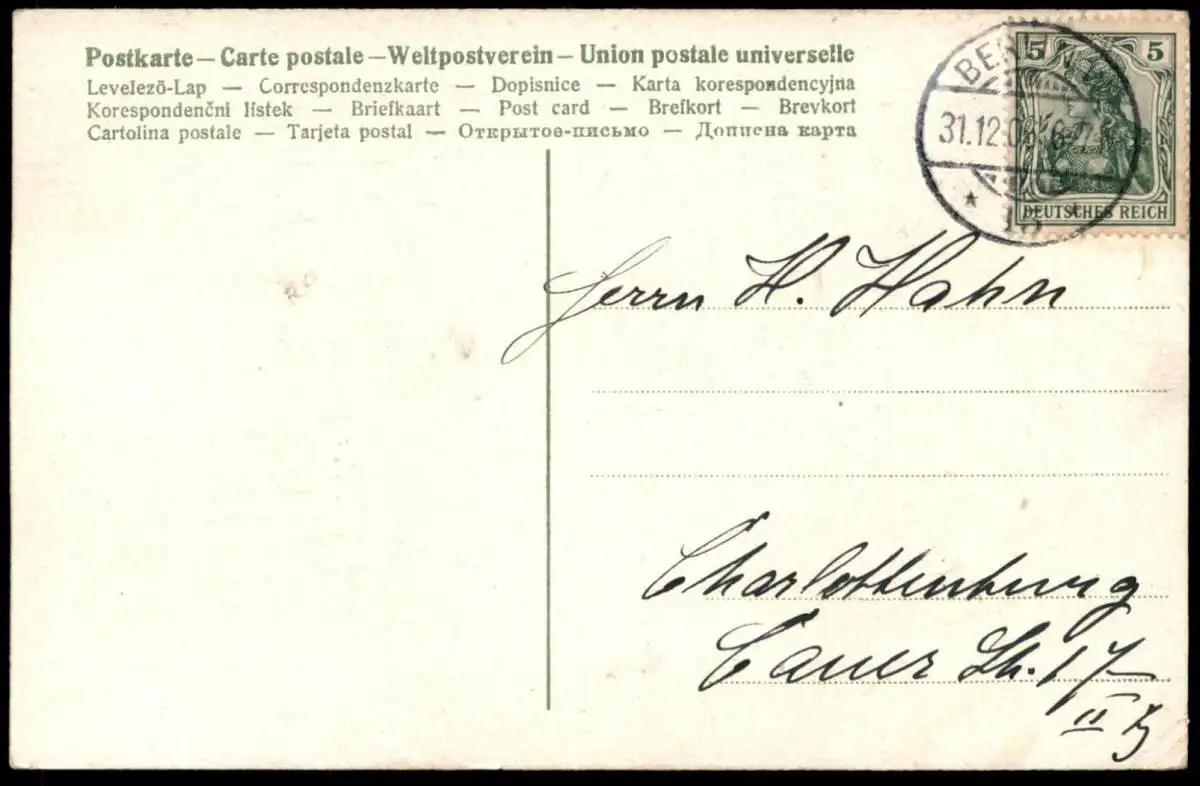 Postkarte — Carte postale — Weltpostverein — Union postale universelle
Levelező-Lap — Correspondenzkarte — Dopisnice — Karta korespondencyjna
Korespondenční lístek — Briefkaart — Post card — Brefkort — Brevkort
Cartolina postale — Tarjeta postal — Открытое-письмо — Дописна карта
5 5
DEUTSCHES REICH
31.12.0
Herrn H. Hahn
Charlottenburg
Cauer Str. 17
II